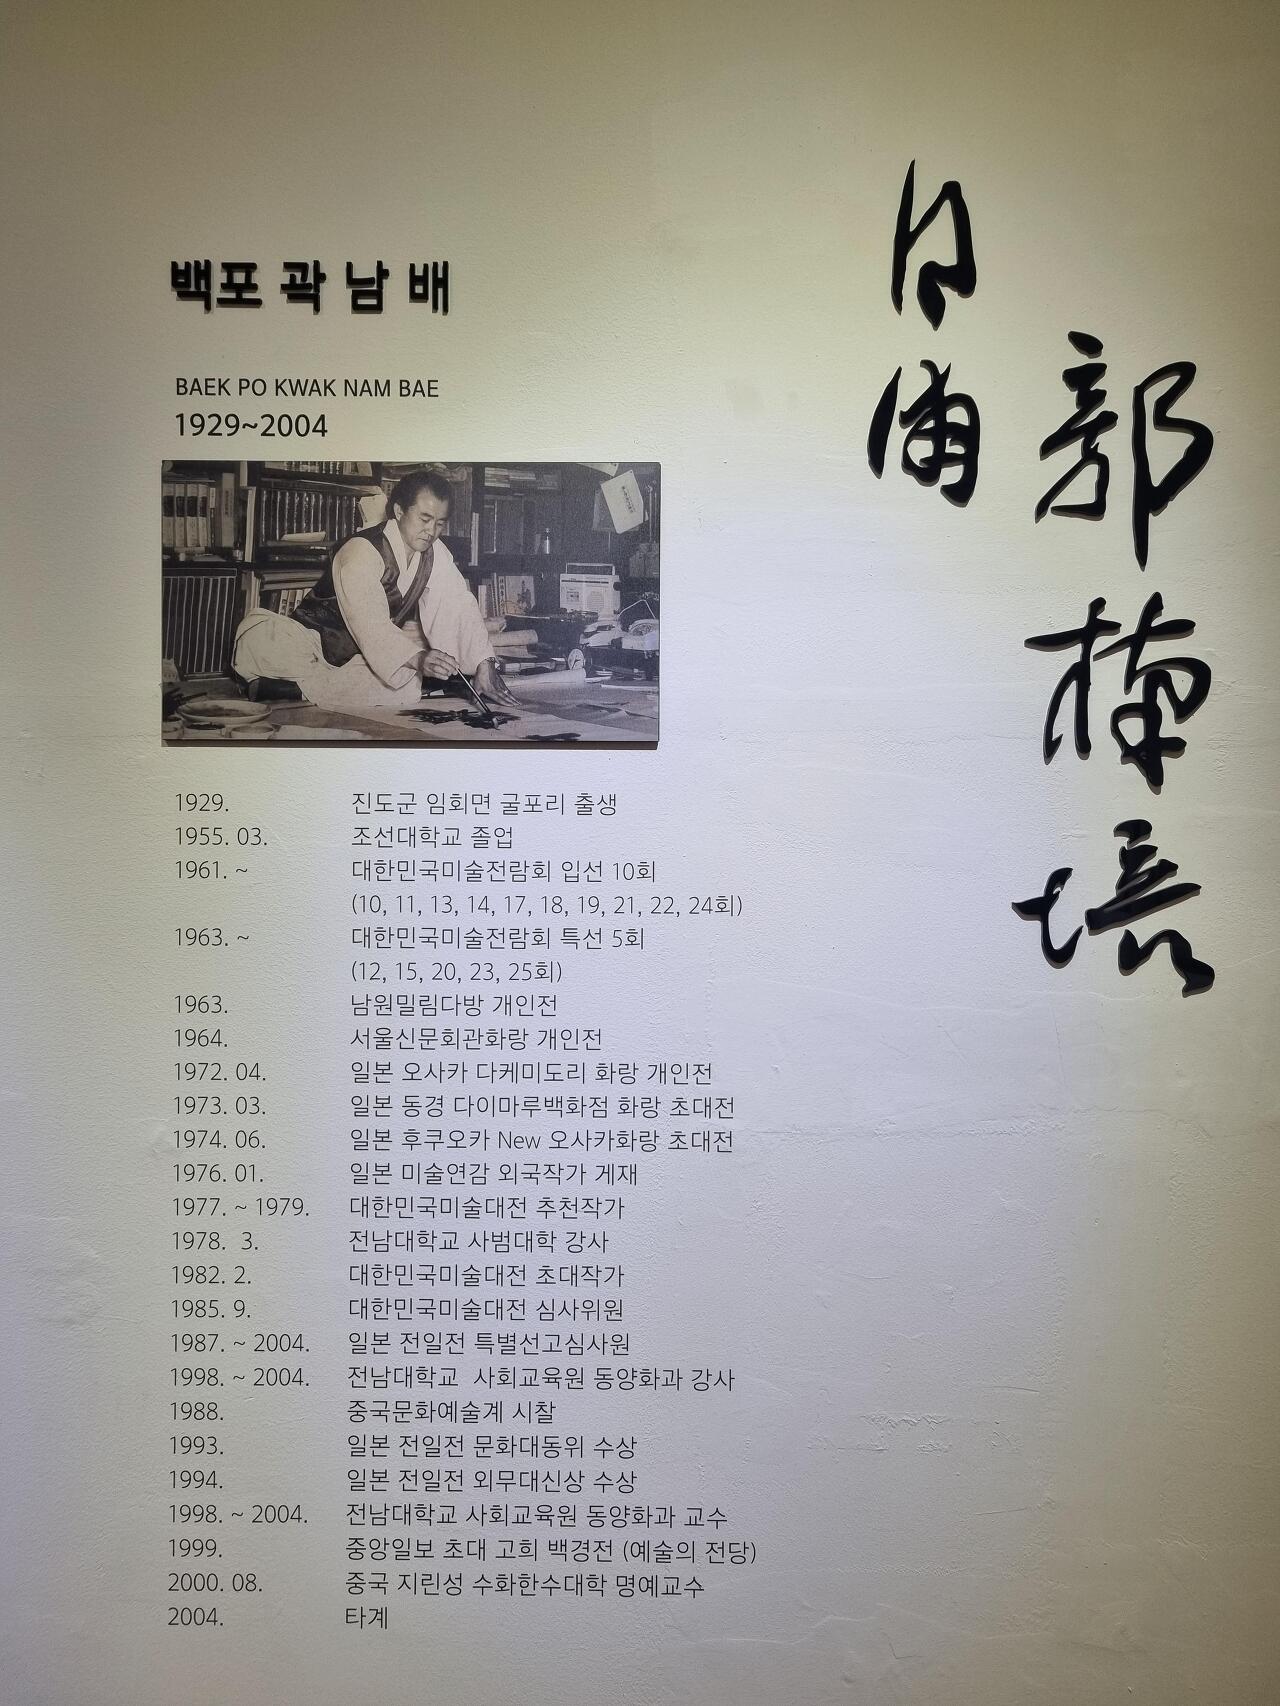 백포 곽남배
BAEK PO KWAK NAM BAE
1929~2004
1929. 진도군 임회면 굴포리 출생
1955. 03. 조선대학교 졸업
1961. ~ 대한민국미술전람회 입선 10회
(10, 11, 13, 14, 17, 18, 19, 21, 22, 24회)
1963. ~ 대한민국미술전람회 특선 5회
(12, 15, 20, 23, 25회)
1963. 남원밀림다방 개인전
1964. 서울신문회관화랑 개인전
1972. 04. 일본 오사카 다케미도리 화랑 개인전
1973. 03. 일본 동경 다이마루백화점 화랑 초대전
1974. 06. 일본 후쿠오카 New 오사카화랑 초대전
1976. 01. 일본 미술연감 외국작가 게재
1977. ~ 1979. 대한민국미술대전 추천작가
1978. 3. 전남대학교 사범대학 강사
1982. 2. 대한민국미술대전 초대작가
1985. 9. 대한민국미술대전 심사위원
1987. ~ 2004. 일본 전일전 특별선고심사원
1998. ~ 2004. 전남대학교 사회교육원 동양화과 강사
1988. 중국문화예술계 시찰
1993. 일본 전일전 문화대동위 수상
1994. 일본 전일전 외무대신상 수상
1998. ~ 2004. 전남대학교 사회교육원 동양화과 교수
1999. 중앙일보 초대 고희 백경전 (예술의 전당)
2000. 08. 중국 지린성 수화한수대학 명예교수
2004. 타계
郭楠培
白浦